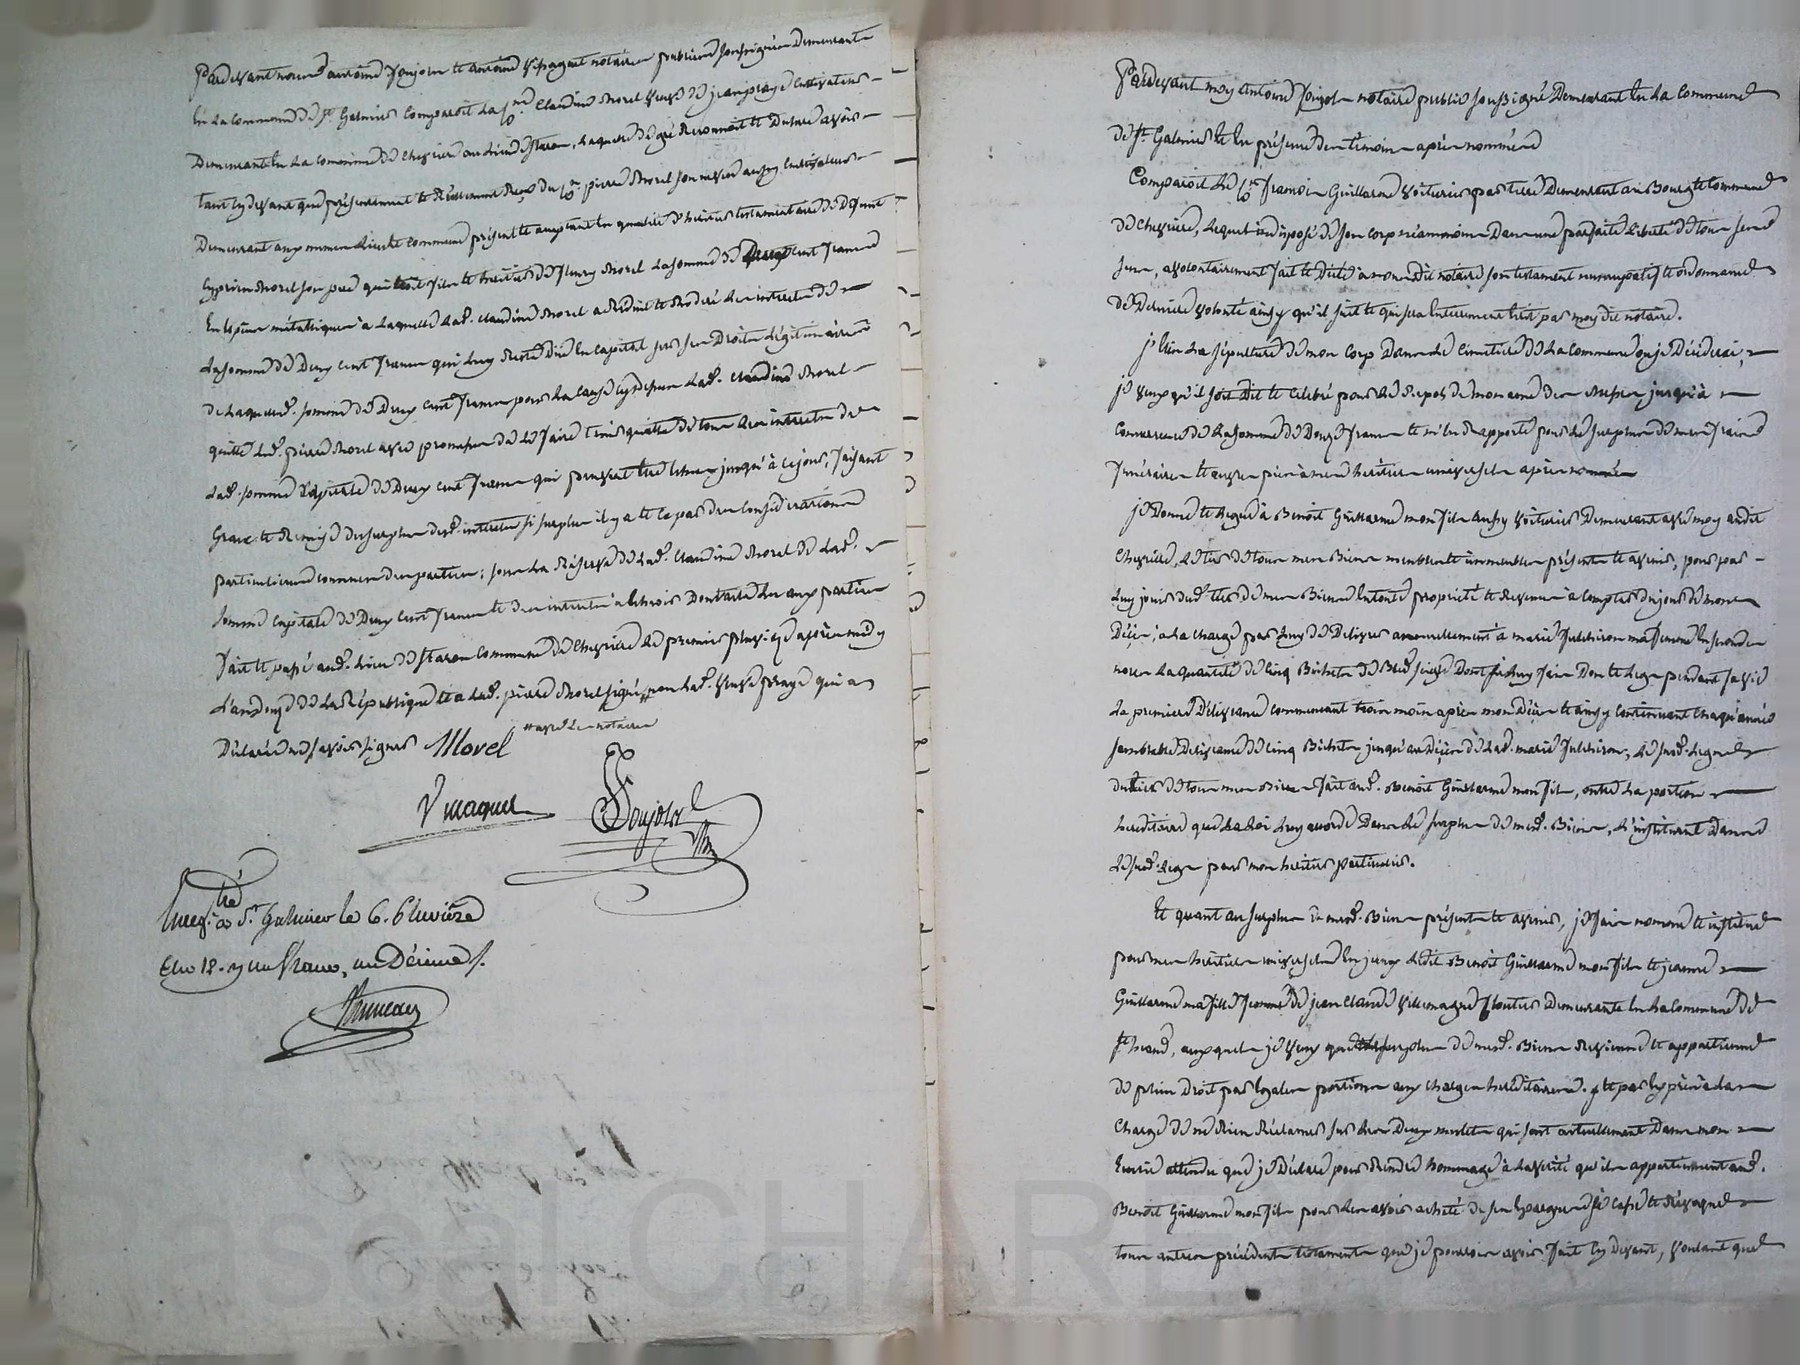 Pardevant nous antoine Poujolr et antoine Vmaguet notaires publics soussignés demeurants
en la commune de St Galmier Comparoit la Cnne Claudine Morel veuve de jean praye Cultivateur
Demeurante en la Commune de Chevrier au lieu de Staron, Laquelle de gré Reconnoit et Declare avoir
tant cy devant que présentement et Réellement Reçu du Cen pierre Morel son neveu aussy Cultivateur
Demeurant aux memes lieu et Commune présent et acceptant en qualité d'heritier testamentaire de Defunt
Morel son pere qui étoit fils et heritier de fleury Morel la somme de Cent francs
En Espèces métalliques à laquelle lad. Claudine Morel a Reduit et Moderé les interets de
La somme de Deux Cent francs qui luy Restoit Düe en Capital sur ses Droits Légitimaires
de laquelle. somme de Deux Cent francs pour la Cause cy dessus lad. Claudine Morel
quitte led. pierre Morel avec promesse de le faire tenir quitte de tous les interets de
lad. somme Capitale de Deux Cent francs qui peuvent etre échus jusqu'à ce jour, faisant
Grace et Remise du surplus desd. interets si surplus il y a et ce par des Considerations
particulieres connues des parties; sous la Réserve de lad. Claudine Morel de lad.
somme Capitale de Deux Cent francs et des interets à échoir Dont acte lu aux parties
fait et passé aud. lieu de Staron Commune de Chevrier le premier Pluviose après midy
L'an Douze de la République et a led. pierre Morel signé # non lad. veuve praye qui a
# avec les notaires
Déclaré ne savoir signer Morel
Vmaguet Poujolr
Enreg.tré à St. Galmier le 6. Pluviôse
An 12. R un franc, un Décime /.
Pardevant moy Antoine Poujolr notaire public soussigné Demeurant en la Commune
de St. Galmier et en présence des témoins après nommés
Comparoit le Cen francois Guillarme voiturier par terre Demeurant au Bourg et Commune
de Chevrier, Lequel indisposé de son Corps néanmoins Dans une parfaite liberté de tous ses
sens, a volontairement fait et Dicté à mon dit notaire son testament nuncupatif et ordonnance
de Derniere volonté ainsy qu'il suit et qui sera Entierement écrit par moy dit notaire.
J'Elis la sépulture de mon Corps Dans le Cimetiere de la Commune ou je Décéderai,
je veux qu'il soit Dit et Célébré pour le Repos de mon ame des Messes jusqu'à
Concurrence de la somme de Douze francs et m'en Rapporte pour le surplus de mes frais
funéraires et œuvres pies à mes héritiers universels après nommés
je Donne et legue à Benoit Guillarme mon fils Aussy voiturier Demeurant avec moy audit
Chevrier, le tiers de tous mes Biens meubles et immeubles présents et avenir, pour par
luy jouir dud. tiers de mes Biens en toute propriété et Revenus à Compter du jour de mon
Décès, à la charge par luy de Delivrer annuellement à marie fulchiron ma femme en secondes
noces la quantité de Cinq Bichets de Bled seigle Dont je luy fais Don et legs pendant sa vie
La premiere Délivrance commencant trois mois après mon Décès et ainsy Continuant chaque année
semblable Delivrance de Cinq Bichets jusqu'au Décès de lad. marie fulchiron, le susd. legs
du tiers de tous mes Biens fait aud. Benoit Guillarme mon fils, outre la portion
héréditaire que la Loi luy accorde Dans le surplus de mesd. Biens, l'instituant Dans
le susd. legs pour mon héritier particulier.
Et quant au surplus de mesd. Biens présents et avenir, je fais nomme et institue
pour mes héritiers universels en jceux ledit Benoit Guillarme mon fils et jeanne
Guillarme ma fille femme de jean Claude Villemagne Demeurante en la Commune de
St heand, auxquels je veux que le surplus de mesd. Biens Revienne et appartienne
de plein Droit par Egales portions aux charges héréditaires. et par exprès à la
Charge de ne Rien Réclamer sur les Deux mulets qui sont actuellement Dans mon
Ecurie attendu que je Déclare pour Rendre hommage à la vérité qu'ils appartiennent aud.
Benoit Guillarme mon fils pour les avoir acheté de ses Epargnes je Casse et Révoque
tous autres précédents testaments que je pourrois avoir fait cy devant, voulant que